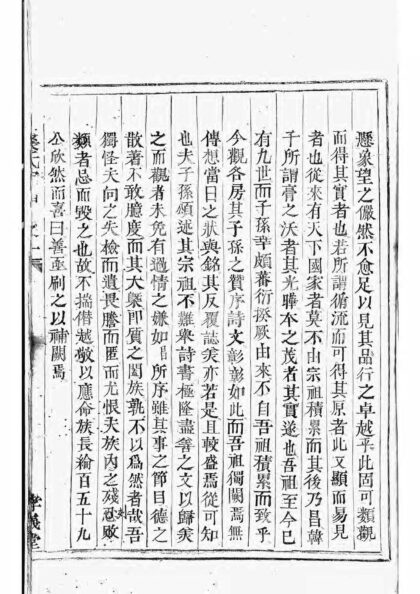 懸象望之儼然不愈足以見其品行之卓越乎此固可類觀
而得其實者也若所謂循流而可得其原者此又顯而易見
者也從來有天下國家者莫不由宗祖積累而其後乃昌韓
子所謂膏之沃者其光曄本之茂者其實遂也吾祖至今已
有九世而子孫幸頗蕃衍揆厥由來不自吾祖積累而致乎
今觀各房其子孫之贊序詩文彰彰如此而吾祖獨闕焉無
傳想當日之狀與銘其反覆誌美亦若是且較盛焉從可知
也夫子孫頌述其宗祖不難舉詩書極隆盡善之文以歸美
之而觀者未免有過情之嫌如 所序雖其事之節目德之
散著不敢臆度而其大槩即質之闔族孰不以為然者哉吾
獨怪夫向之失檢而遺畏謄而匿而尤恨夫族內之殘忍敗
類者忌而毀之也故不揣僭越敬以應命族長綸百五十九
公欣然而喜曰善亟刷之以補闕焉
孝義堂